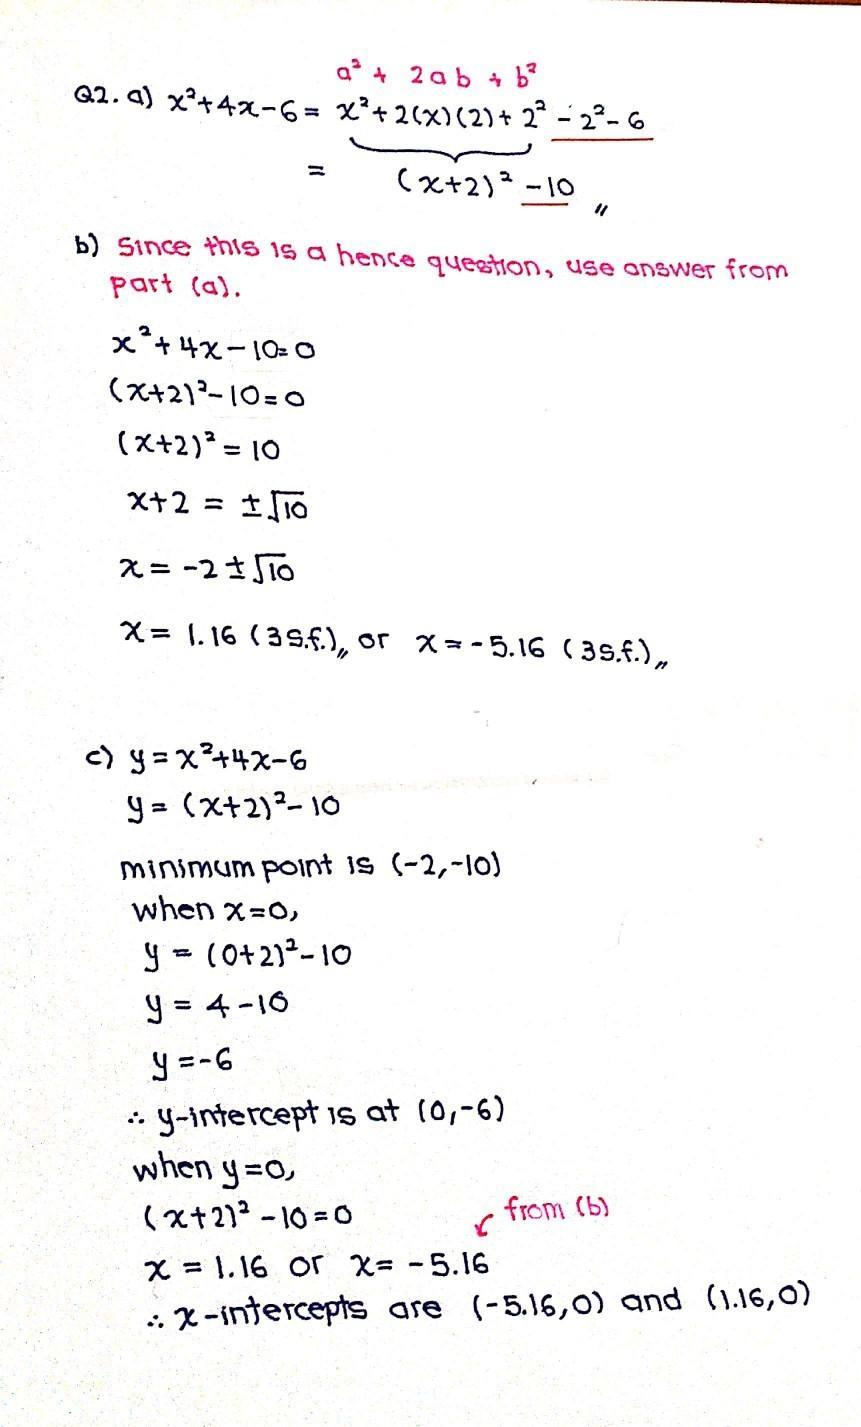 a² + 2ab + b²
Q2. a) x²+4x-6 = x²+2(x)(2)+2² - 2²-6
= (x+2)² -10 ,,
b) Since this is a hence question, use answer from
part (a).
x²+4x-10=0
(x+2)²-10=0
(x+2)² = 10
x+2 = ±√10
x = -2±√10
x = 1.16 (3s.f.),, or x = -5.16 (3s.f.),,
c) y = x²+4x-6
y = (x+2)²-10
minimum point is (-2,-10)
when x=0,
y = (0+2)²-10
y = 4-10
y =-6
∴ y-intercept is at (0,-6)
when y=0,
(x+2)² -10=0
from (b)
x = 1.16 or x= -5.16
∴ x-intercepts are (-5.16,0) and (1.16,0)